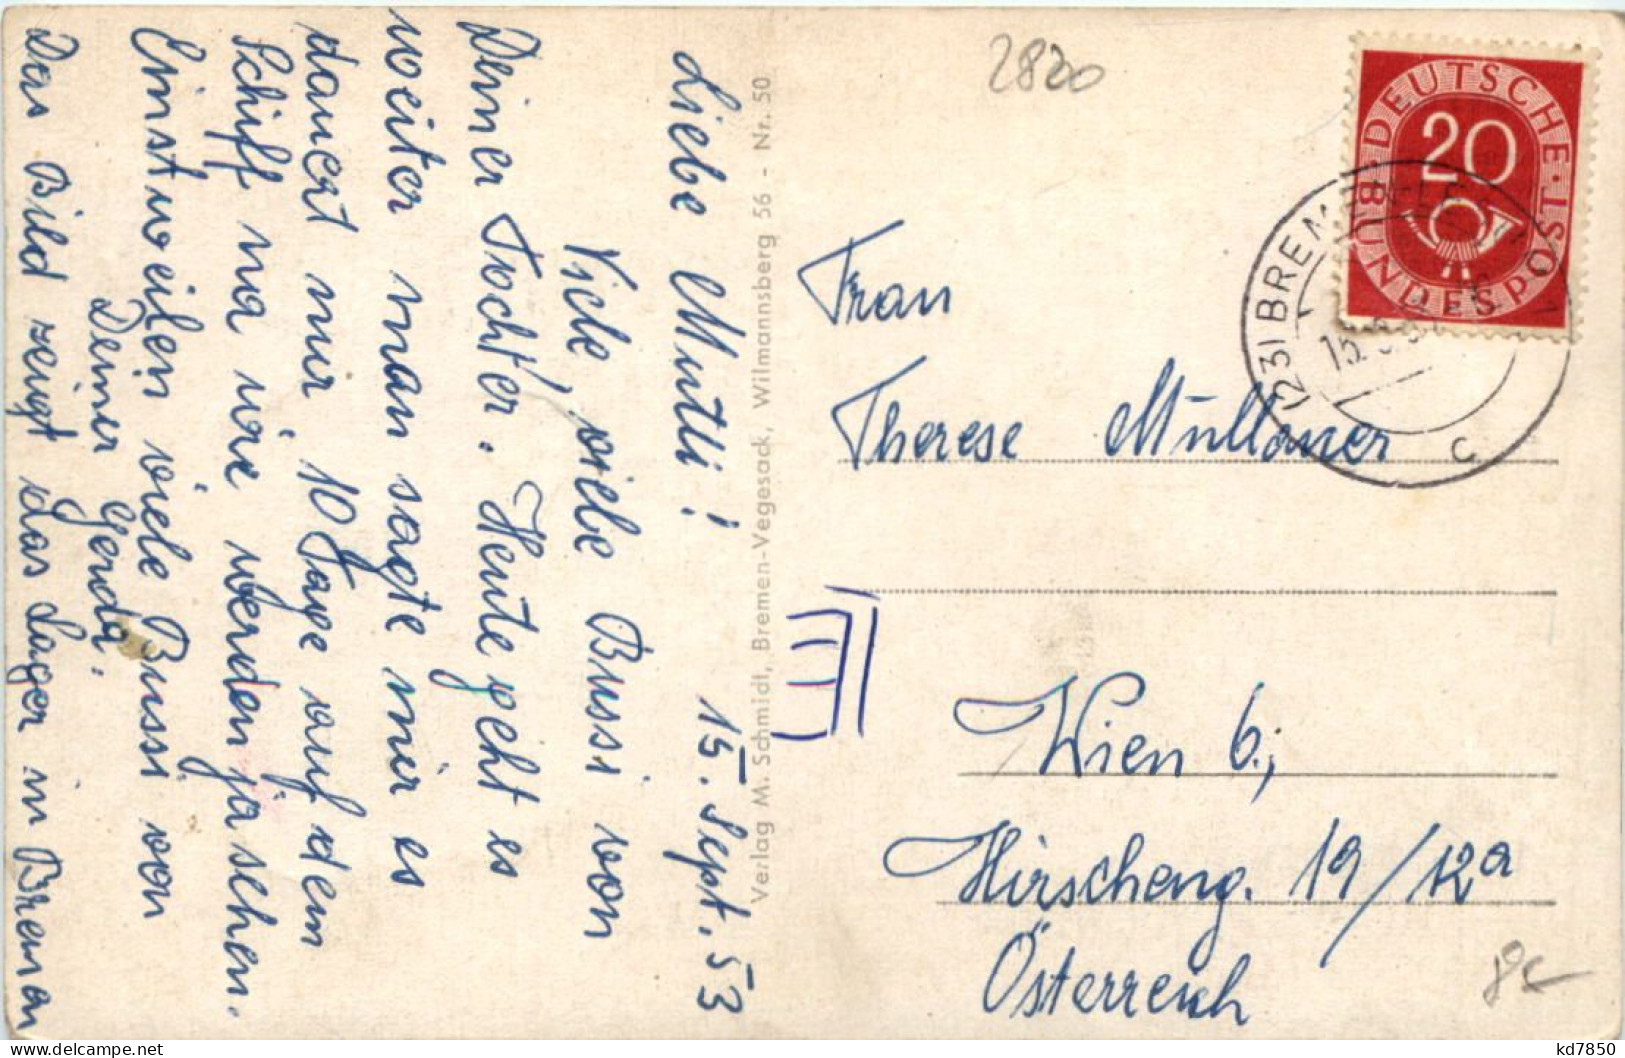 Liebe Mutti! 15. Sept. 53
Viele, viele Bussi von
Deiner Tochter. Heute geht es
weiter man sagte mir es
dauert nur 10 Tage auf dem
Schiff na wir werden ja sehen.
Einstweilen viele Bussi von
Deiner Gerda.
Das Bild zeugt das Lager in Bremen
Verlag M. Schmidt, Bremen-Vegesack, Wilmannsberg 56 - Nr. 50
2820
DEUTSCHE BUNDESPOST
20
(23) BREMEN
c
Frau
Therese Müllauer
Wien 6.,
Hirscheng. 19/12a
Österreich
kd7850